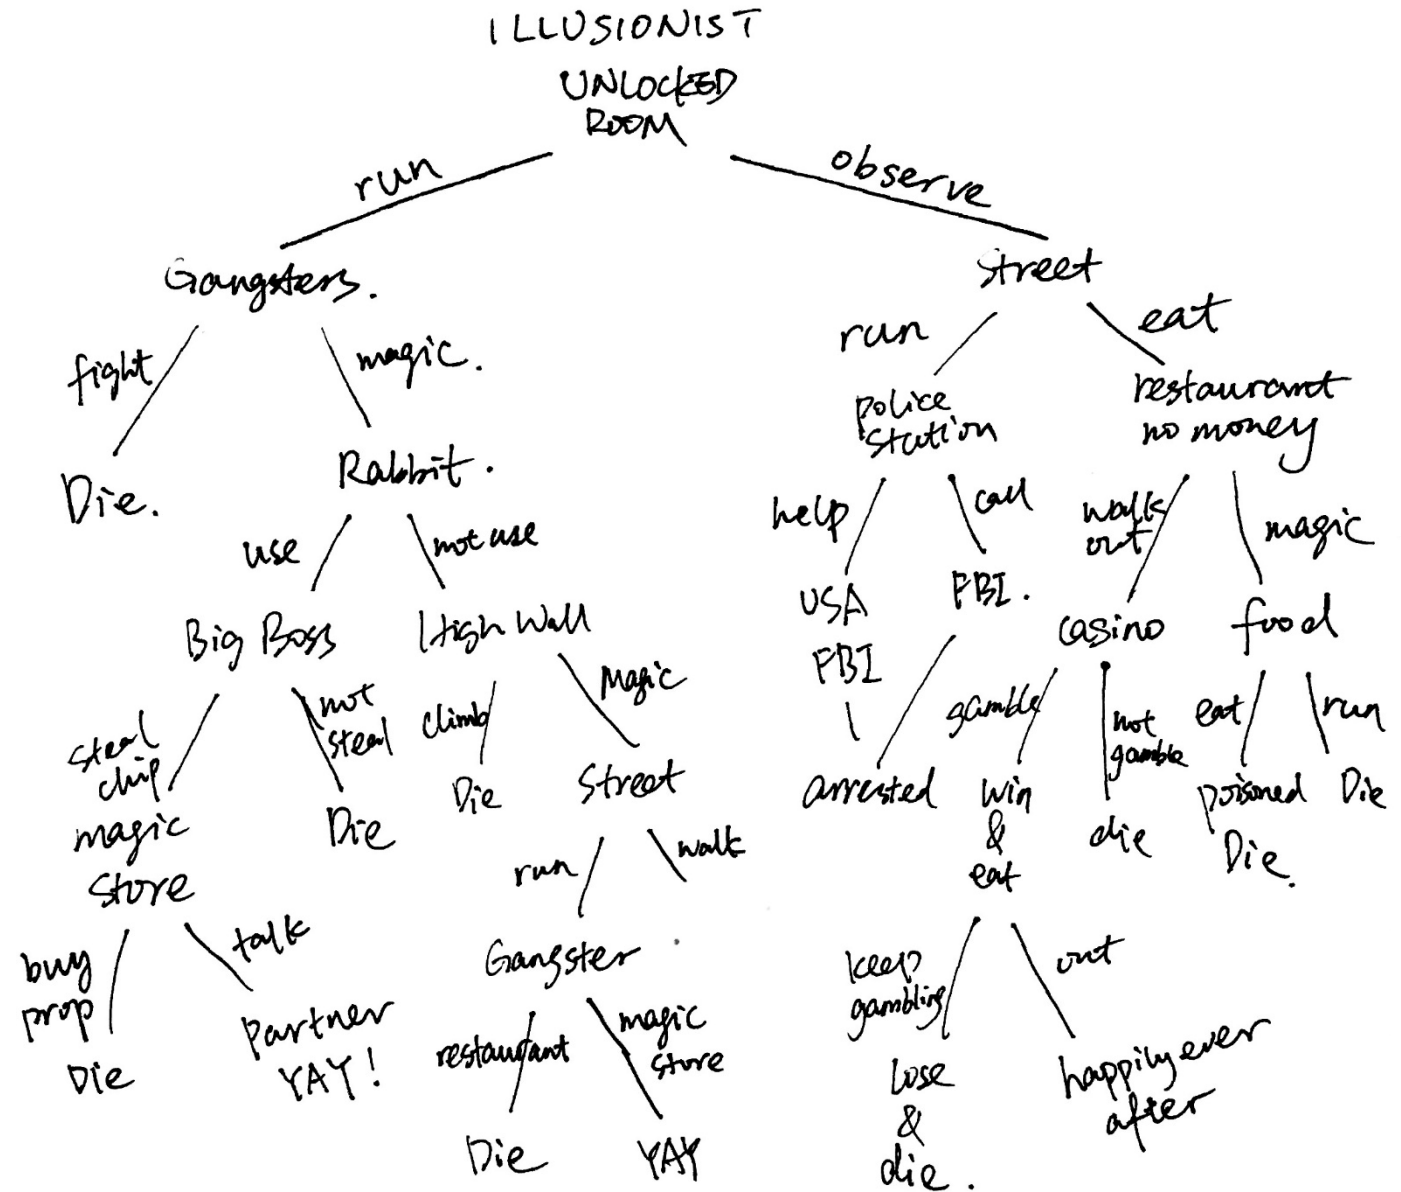 ILLUSIONIST
UNLOCKED
ROOM
run
observe
Gangsters.
Street
fight
magic.
run
eat
Die.
Rabbit.
police
station
restaurant
no money
use
not use
help
call
walk
out
magic
Big Boss
High Wall
USA
FBI
FBI.
casino
food
steal
chip
not
steal
climb
Magic
gamble
not
gamble
eat
run
magic
store
Die
Die
Street
arrested
win
&
eat
die
poisoned
Die.
Die
run
walk
buy
prop
talk
Gangster
keep
gambling
out
Die
Partner
YAY!
restaurant
magic
store
lose
&
die.
happily ever
after
Die
YAY